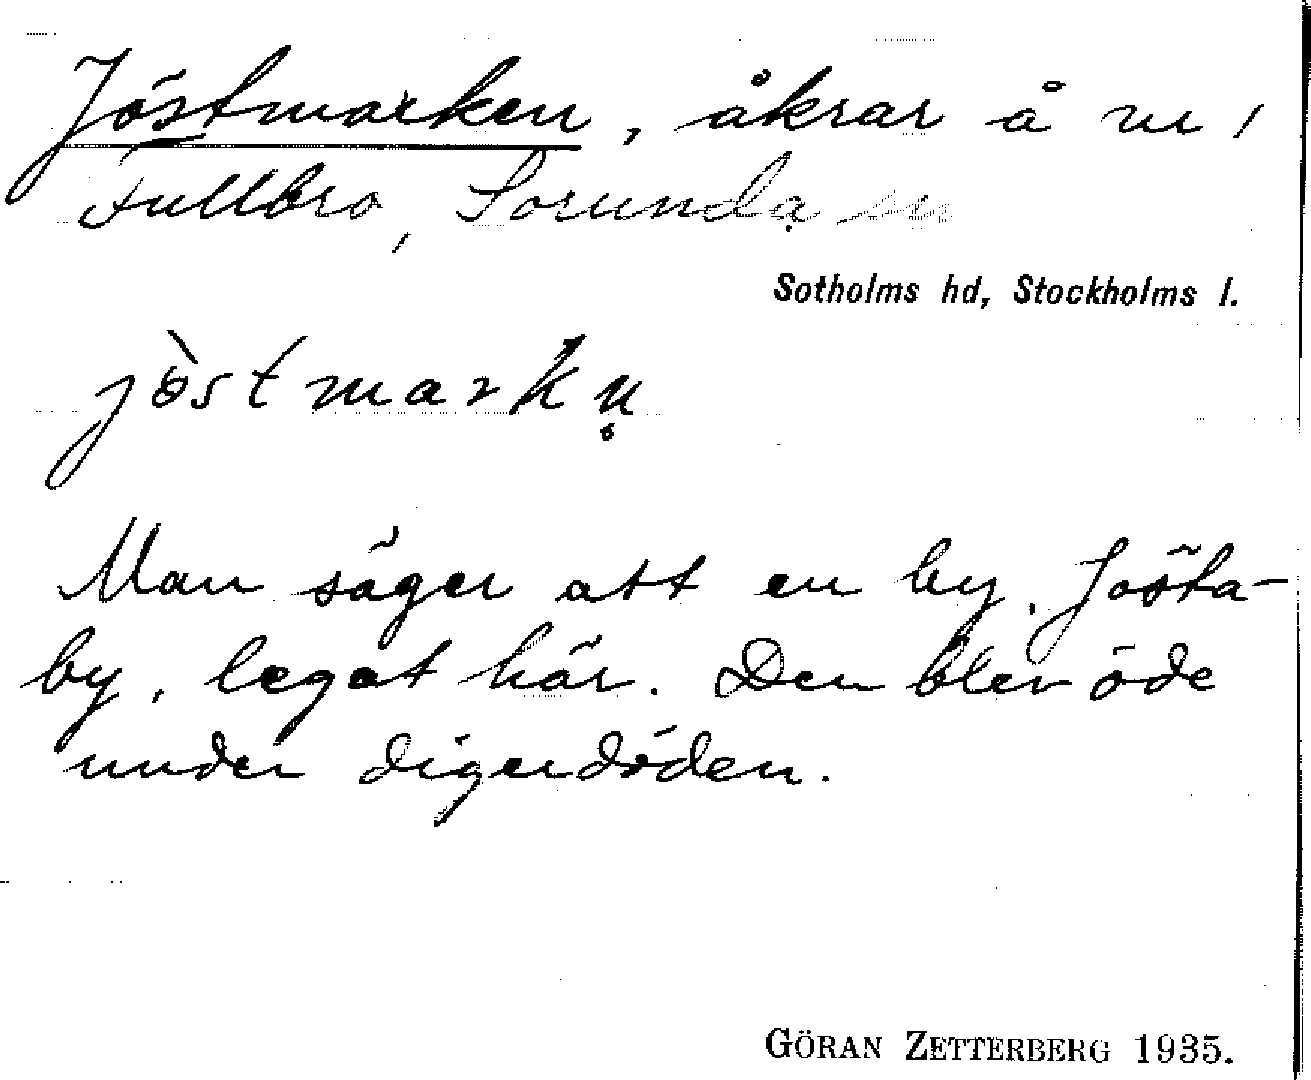 Jöstmarken, åkrar å ru,
Fullbro, Sorunda sn
Sotholms hd, Stockholms l.
jòstmarkn̥
Man säger att en by, Jösta-
by, legat här. Den blev öde
under digerdöden.
GÖRAN ZETTERBERG 1935.